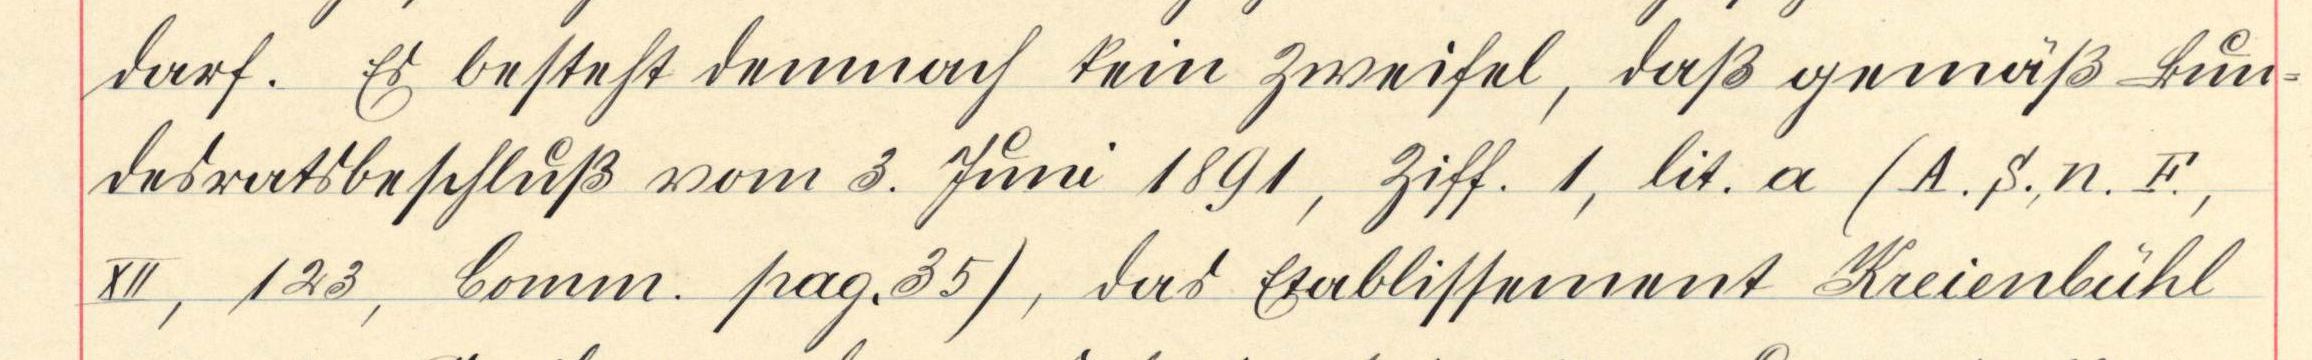 darf. Es besteht demnach kein Zweifel, daß gemäß Bun-
desratsbeschluß vom 3. Juni 1891, Ziff. 1, lit. a (A. S., n. F.,
XII, 123, Comm. pag. 35), das Etablissement Kreienbühl